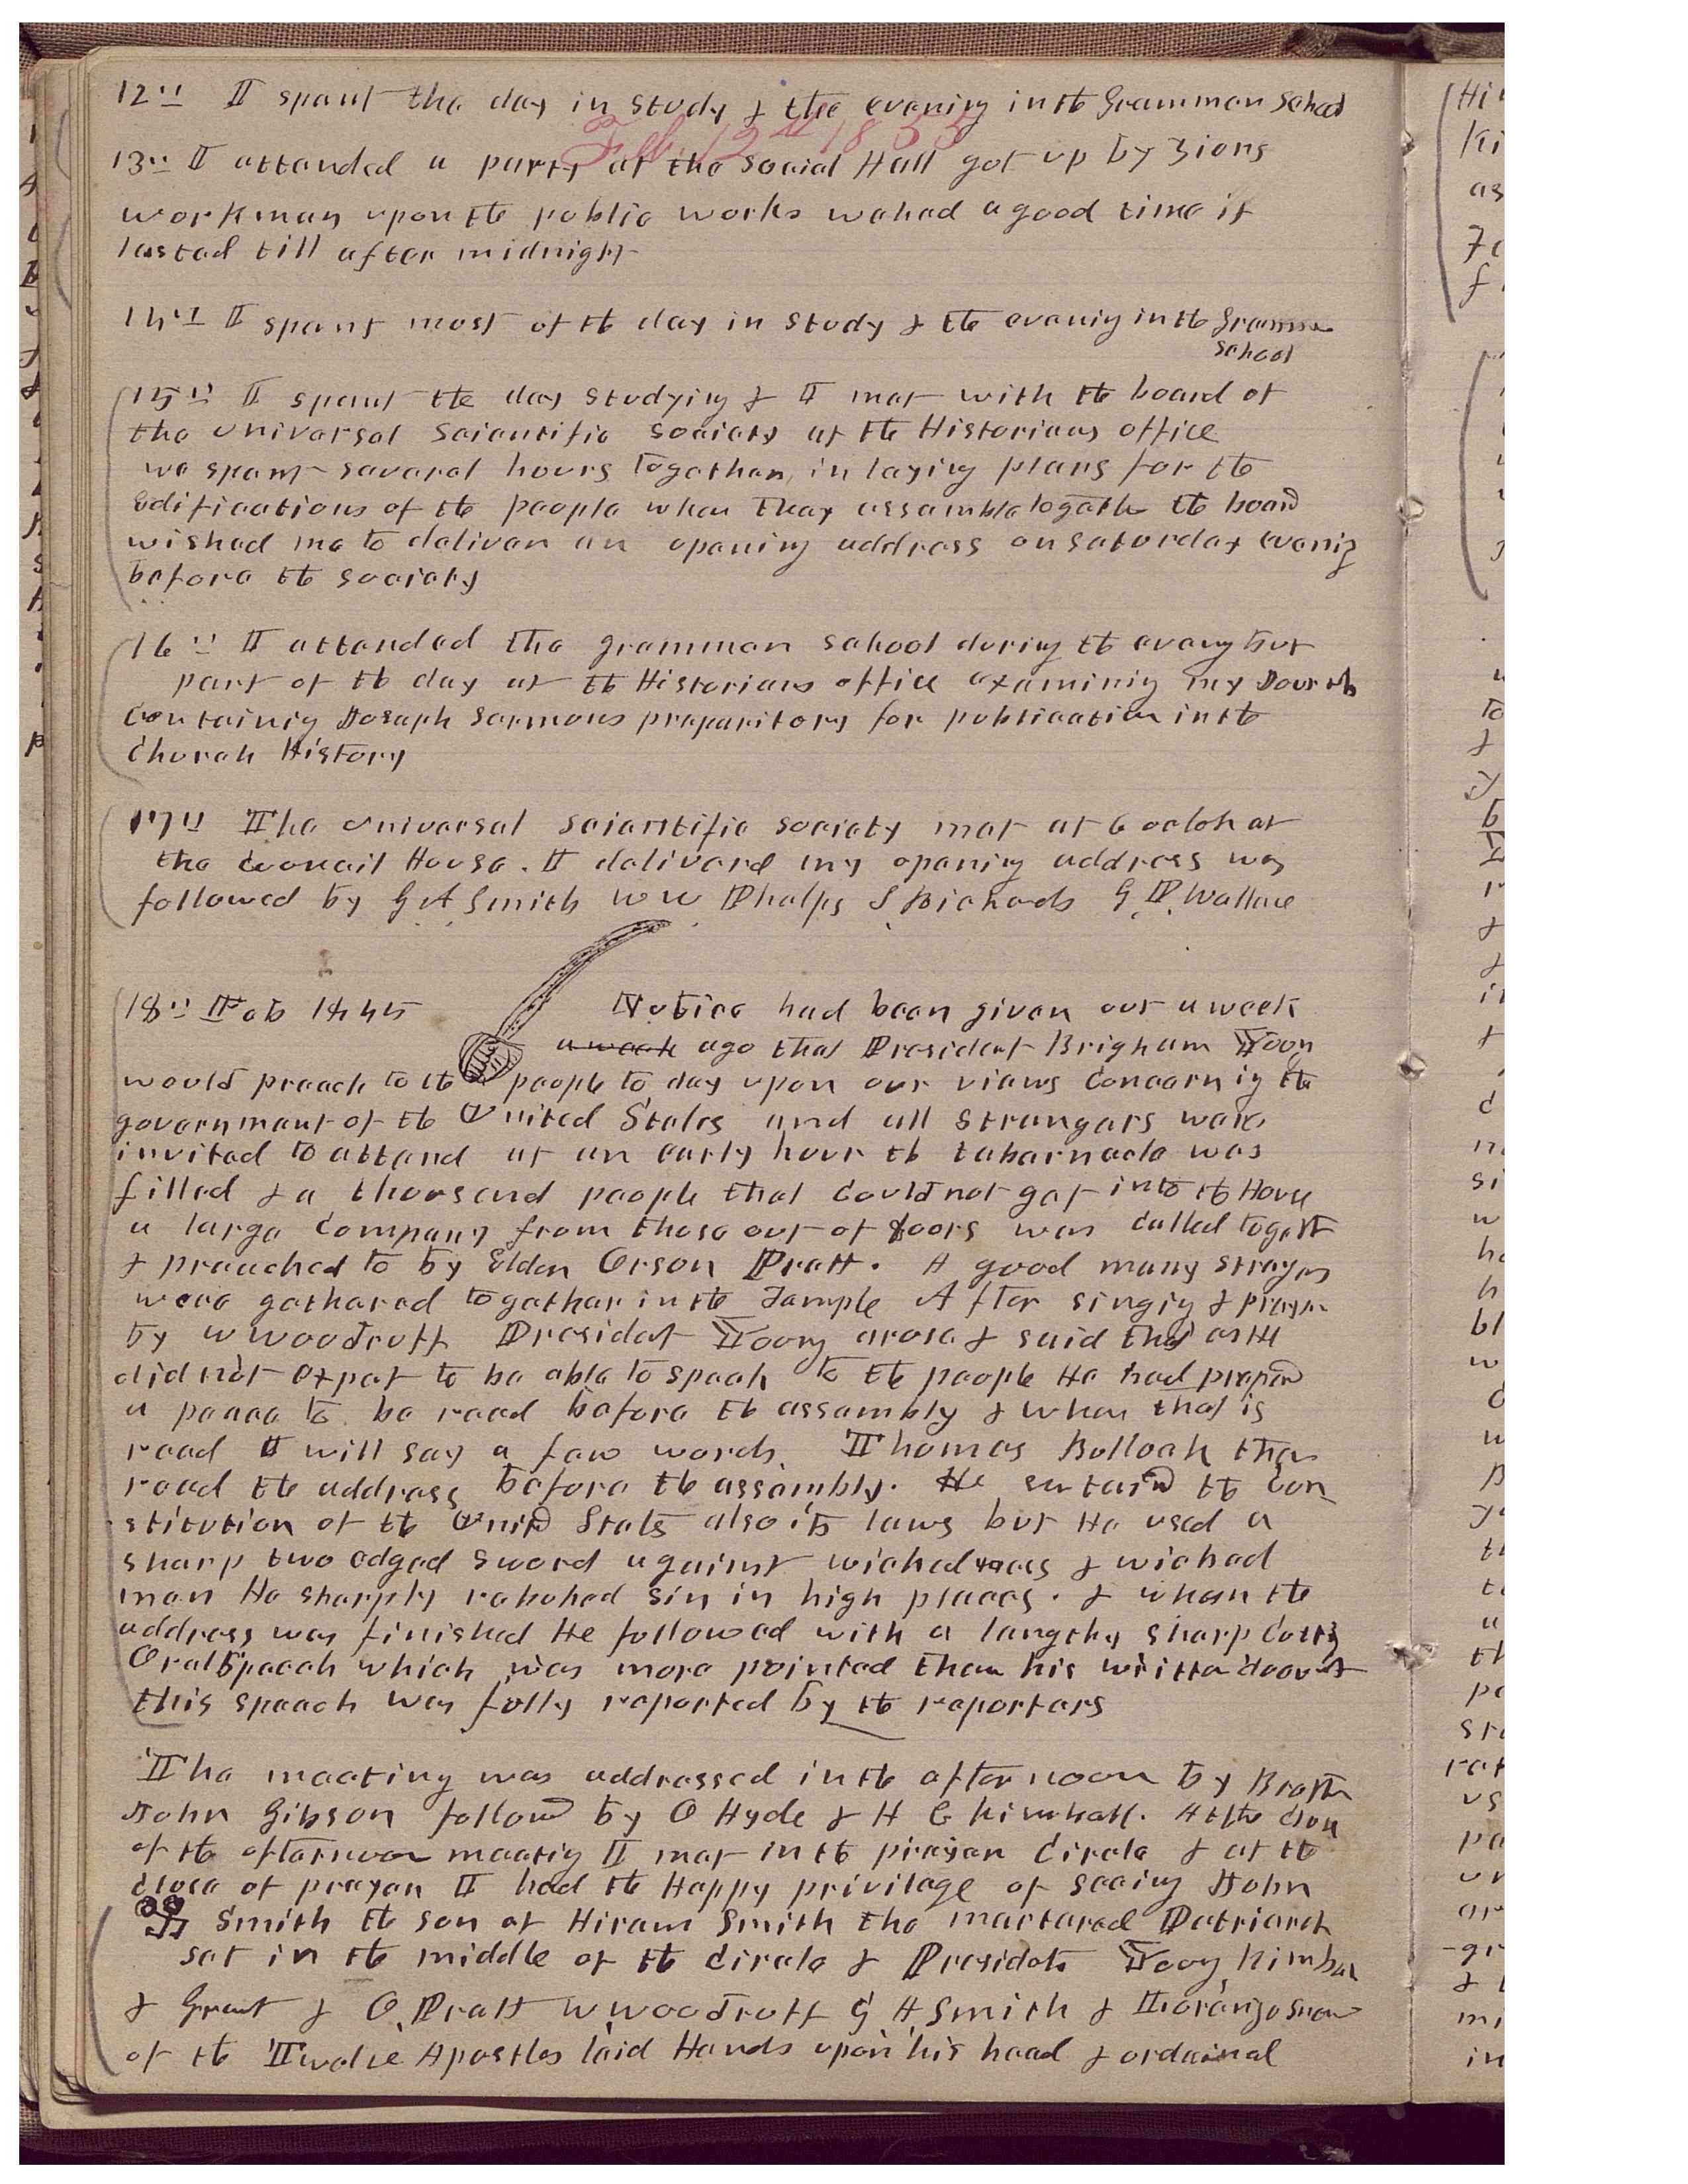 12" I spent the day in study & the evening in the Grammar School
Feb. 12th 1855
13" I attended a party at the Social Hall got up by Zions
workmen upon the public works we had a good time it
lasted till after midnight
14" I spent most of the day in study & the evening in the Grammar
School
15" I spent the day studying & I met with the board of
the Universal Scientific Society at the Historians office
we spent several hours together in laying plans for the
Edifications of the people when they assemble together the board
wished me to deliver an opening address on Saturday evening
before the society
16" I attended the grammar school during the eveng but
part of the day at the Historians office examining my Journals
Containing Joseph Sermons preparitory for publication in the
Church History
17" The Universal Scientific Society met at 6 oclok at
the Council House. I deliverd my opening address was
followed by G A Smith W W Phelps S Richards G. D. Wallace
18" Feb 1855 Notice had been given out a week
a week ago that President Brigham Young
would preach to the people to day upon our views Concerning the
government of the United States and all strangers were
invited to attend at an early hour the tabernacle was
filled & a thousand people that could not get into the House
a large company from those out of doors was called togeth
& preached to by Elder Orson Pratt. A good many strangers
were gathered together in the Temple After singing & prayer
by W Woodruff President Young arose & said that as He
did not expet to be able to speak to the people He had prepared
a peace to be read before the assembly & when that is
read I will say a few words. Thomas Bullock then
read the address before the assembly. He sustaind the Con
stitution of the Unitd States also its laws but He used a
sharp two edged sword against wickedness & wicked
men He sharply rebuked sin in high places. & when the
address was finished He followed with a lengthy sharp cutting
Oral Speech which was more pointed than his written docut
this speech was fully reported by the reporters
The meeting was addressed in the afternoon by Brother
John Gibson followd by O Hyde & H C Kimball. At the close
of the afternoon meeting I met in the prayer Circle & at the
close of prayer I had the Happy privilege of seeing John
Smith the son of Hiram Smith the martered Patriarch
set in the middle of the circle & Presidets Young Kimball
& Grant & O. Pratt W Woodruff G A Smith & Lorenzo Snow
of the Twelve Apostles laid Hands upon his head & ordained